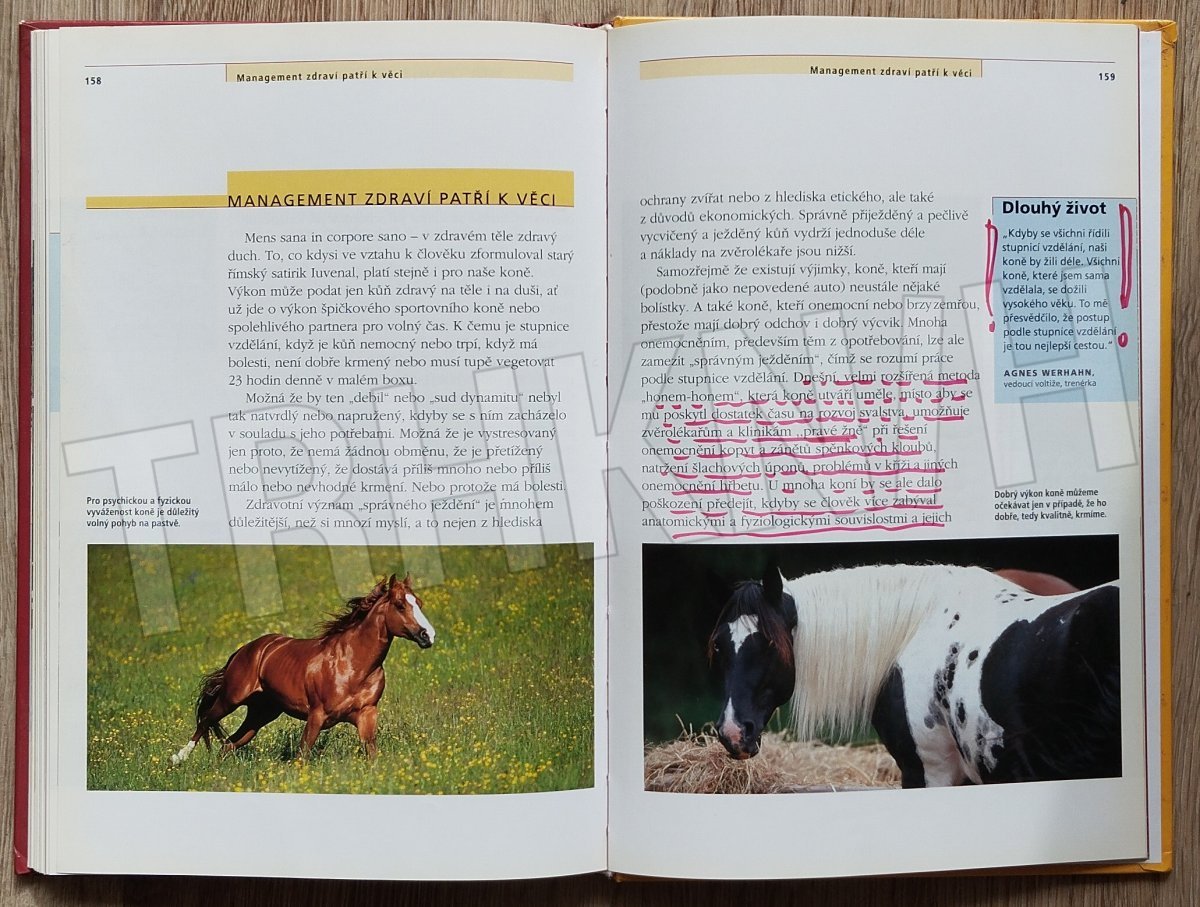 158
Management zdraví patří k věci
MANAGEMENT ZDRAVÍ PATŘÍ K VĚCI
Mens sana in corpore sano – v zdravém těle zdravý
duch. To, co kdysi ve vztahu k člověku zformuloval starý
římský satirik Iuvenal, platí stejně i pro naše koně.
Výkon může podat jen kůň zdravý na těle i na duši, ať
už jde o výkon špičkového sportovního koně nebo
spolehlivého partnera pro volný čas. K čemu je stupnice
vzdělání, když je kůň nemocný nebo trpí, když má
bolesti, není dobře krmený nebo musí tupě vegetovat
23 hodin denně v malém boxu.
Možná že by ten „debil“ nebo „sud dynamitu“ nebyl
tak natvrdlý nebo napružený, kdyby se s ním zacházelo
v souladu s jeho potřebami. Možná že je vystresovaný
jen proto, že nemá žádnou obměnu, že je přetížený
nebo nevytížený, že dostává příliš mnoho nebo příliš
málo nebo nevhodné krmení. Nebo protože má bolesti.
Zdravotní význam „správného ježdění“ je mnohem
důležitější, než si mnozí myslí, a to nejen z hlediska
Pro psychickou a fyzickou
vyváženost koně je důležitý
volný pohyb na pastvě.
Management zdraví patří k věci
159
ochrany zvířat nebo z hlediska etického, ale také
z důvodů ekonomických. Správně přiježděný a pečlivě
vycvičený a ježděný kůň vydrží jednoduše déle
a náklady na zvěrolékaře jsou nižší.
Samozřejmě že existují výjimky, koně, kteří mají
(podobně jako nepovedené auto) neustále nějaké
bolístky. A také koně, kteří onemocní nebo brzy zemřou,
přestože mají dobrý odchov i dobrý výcvik. Mnoha
onemocněním, především těm z opotřebování, lze ale
zamezit „správným ježděním“, čímž se rozumí práce
podle stupnice vzdělání. Dnešní, velmi rozšířená metoda
„honem-honem“, která koně utváří uměle, místo aby se
mu poskytl dostatek času na rozvoj svalstva, umožňuje
zvěrolékařům a klinikám „pravé žně“ při řešení
onemocnění kopyt a zánětů spěnkových kloubů,
natržení šlachových úponů, problémů v kříži a jiných
onemocnění hřbetu. U mnoha koní by se ale dalo
poškození předejít, kdyby se člověk více zabýval
anatomickými a fyziologickými souvislostmi a jejich
Dlouhý život
„Kdyby se všichni řídili
stupnicí vzdělání, naši
koně by žili déle. Všichni
koně, které jsem sama
vzdělala, se dožili
vysokého věku. To mě
přesvědčilo, že postup
podle stupnice vzdělání
je tou nejlepší cestou.“
AGNES WERHAHN,
vedoucí voltiže, trenérka
Dobrý výkon koně můžeme
očekávat jen v případě, že ho
dobře, tedy kvalitně, krmíme.
TRHKNIH